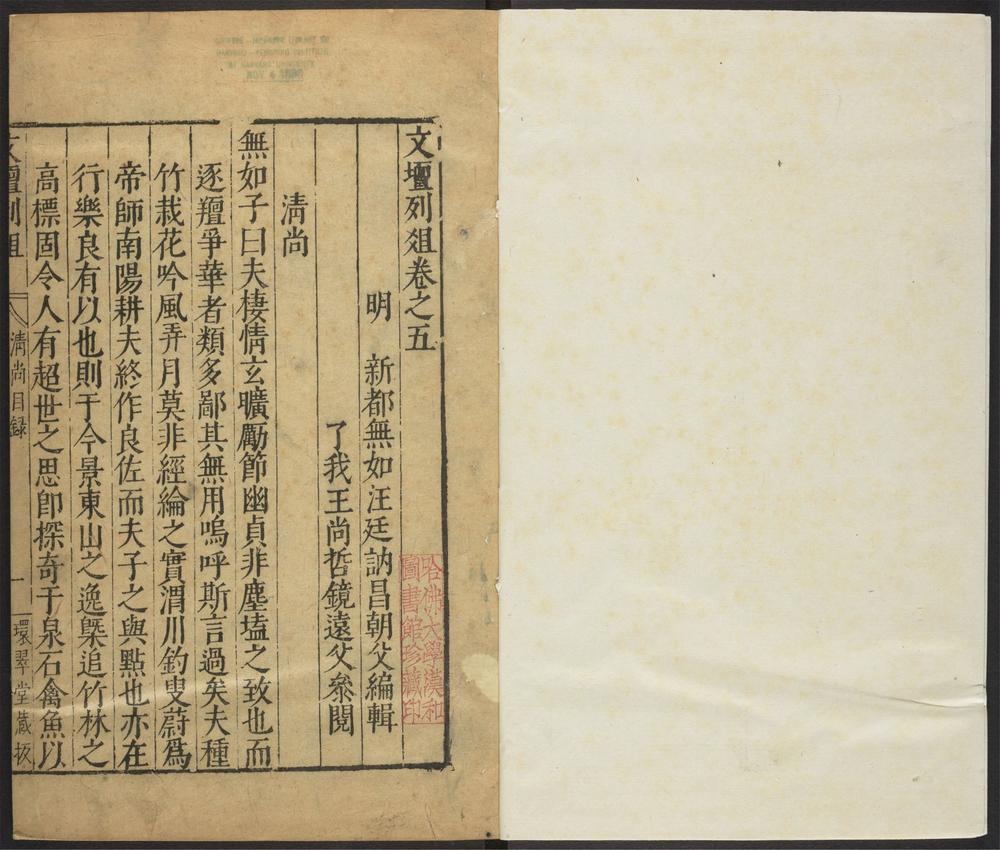 文壇列爼卷之五
明 新都無如汪廷訥昌朝父編輯
了我王尚哲鏡遠父叅閱
清尚
無如子曰夫棲情玄曠勵節幽貞非塵壒之致也而
逐羶爭華者類多鄙其無用嗚呼斯言過矣夫種
竹栽花吟風弄月莫非經綸之實渭川釣叟蔚爲
帝師南陽耕夫終作良佐而夫子之與點也亦在
行樂良有以也則于今景東山之逸槩追竹林之
高標固令人有超世之思卽探奇于泉石禽魚以
文壇列爼 清尚目録 一 環翠堂藏板
哈佛大學漢和
圖書館珍藏印
NOV 4